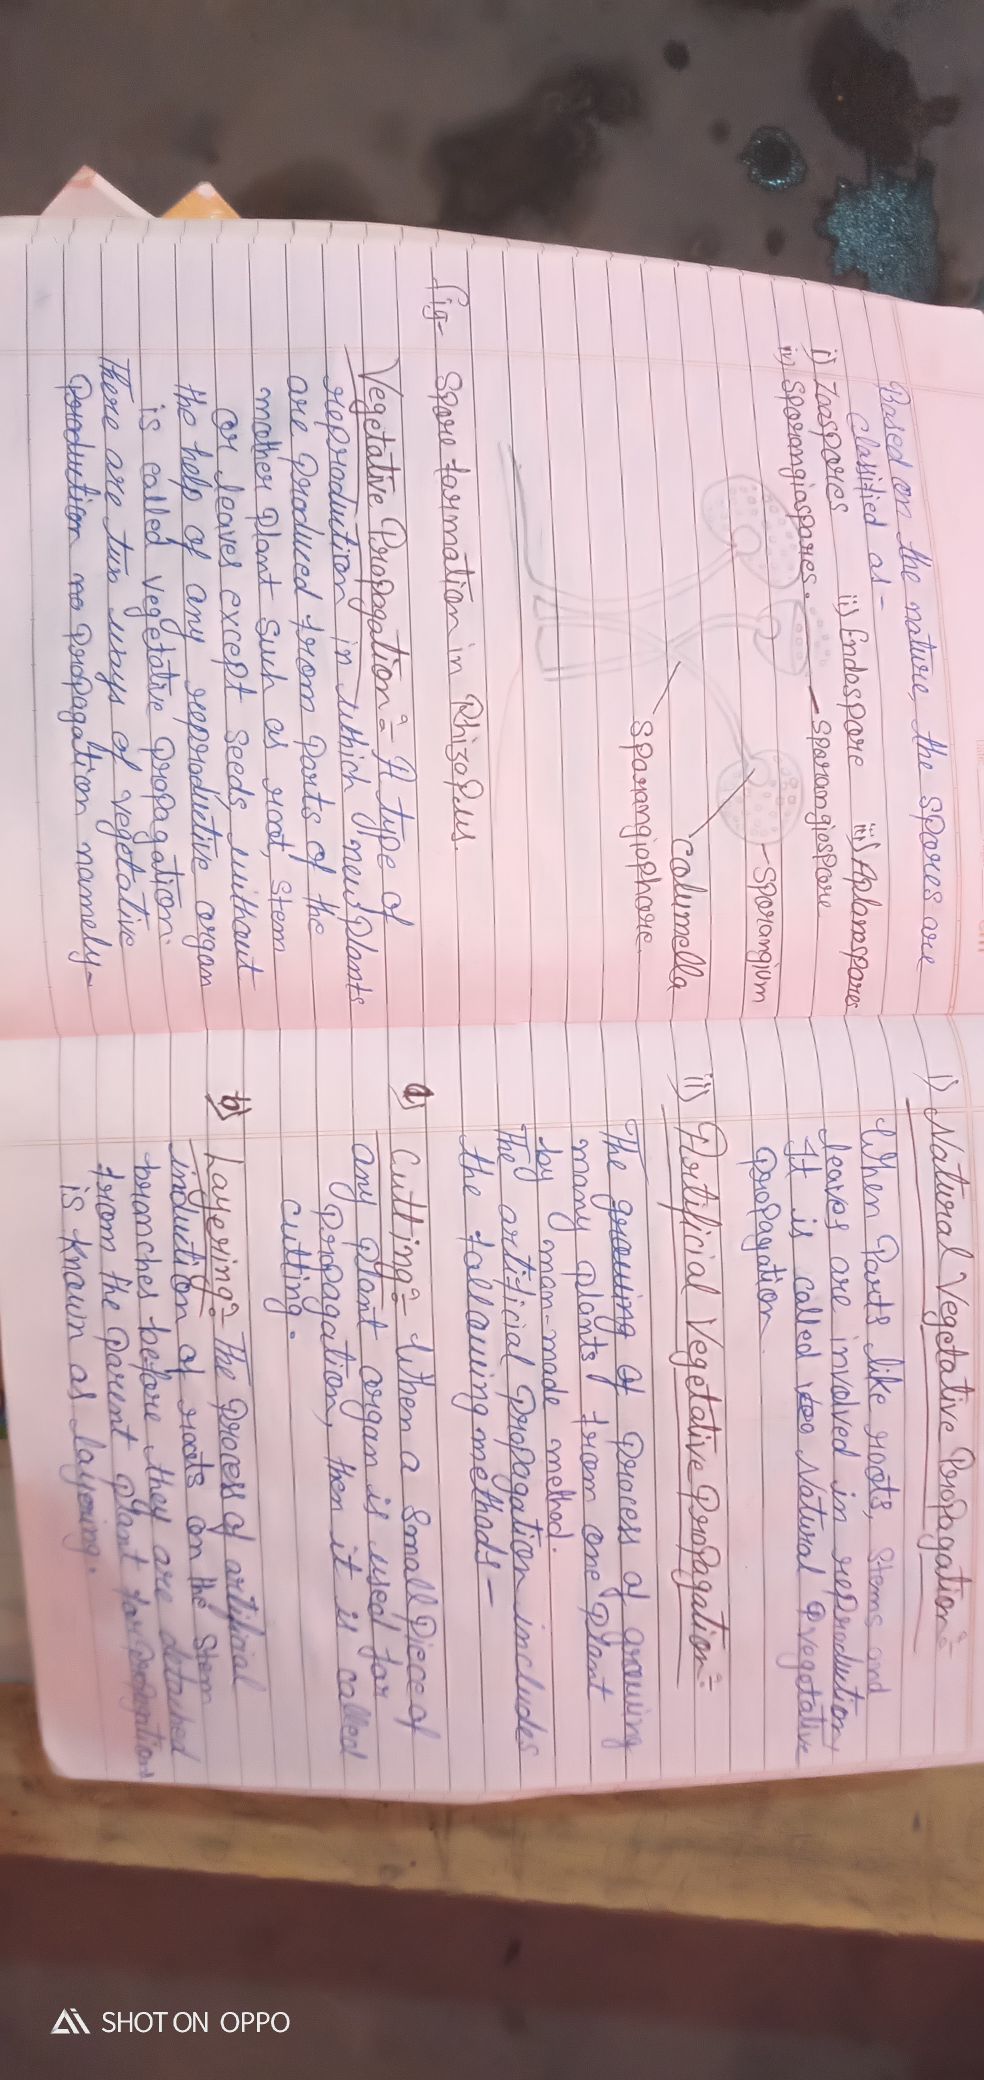 Based on the nature, the spores are
classified as -
i) Zoospores ii) Endospore iii) Aplanospores
iv) Sporangiospores.
Sporangiospore
Sporangium
Columella
Sporangiophore
fig- Spore formation in Rhizopus.
Vegetative Propagation:- A type of
reproduction in which new plants
are produced from parts of the
mother plant such as root, stem
or leaves except seeds without
the help of any reproductive organ
is called vegetative propagation.
There are two ways of vegetative
production no propagation namely-
i) Natural Vegetative Propagation:-
When Parts like roots, stems and
leaves are involved in reproduction
It is called Natural vegetative
propagation.
ii) Artificial Vegetative Propagation:-
The growing of process of growing
many plants from one plant
by man-made method.
The artificial propagation includes
the following methods -
a) Cutting:- When a small piece of
any plant organ is used for
propagation, then it is called
cutting.
b) Layering:- The process of artificial
induction of roots on the stem
branches before they are detached
from the parent plant for propagation
is known as layering.
SHOT ON OPPO